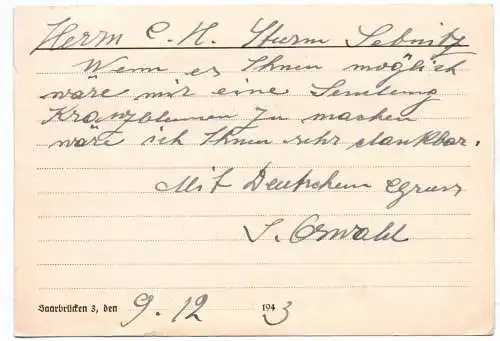 Herrn C. H. Sturm Sebnitz
Wenn es Ihnen möglich
wäre mir eine Sendung
Kranzblumen zu machen
wäre ich Ihnen sehr dankbar.
Mit Deutschem Gruss
S. Oswald
Saarbrücken 3, den 9.12 1943